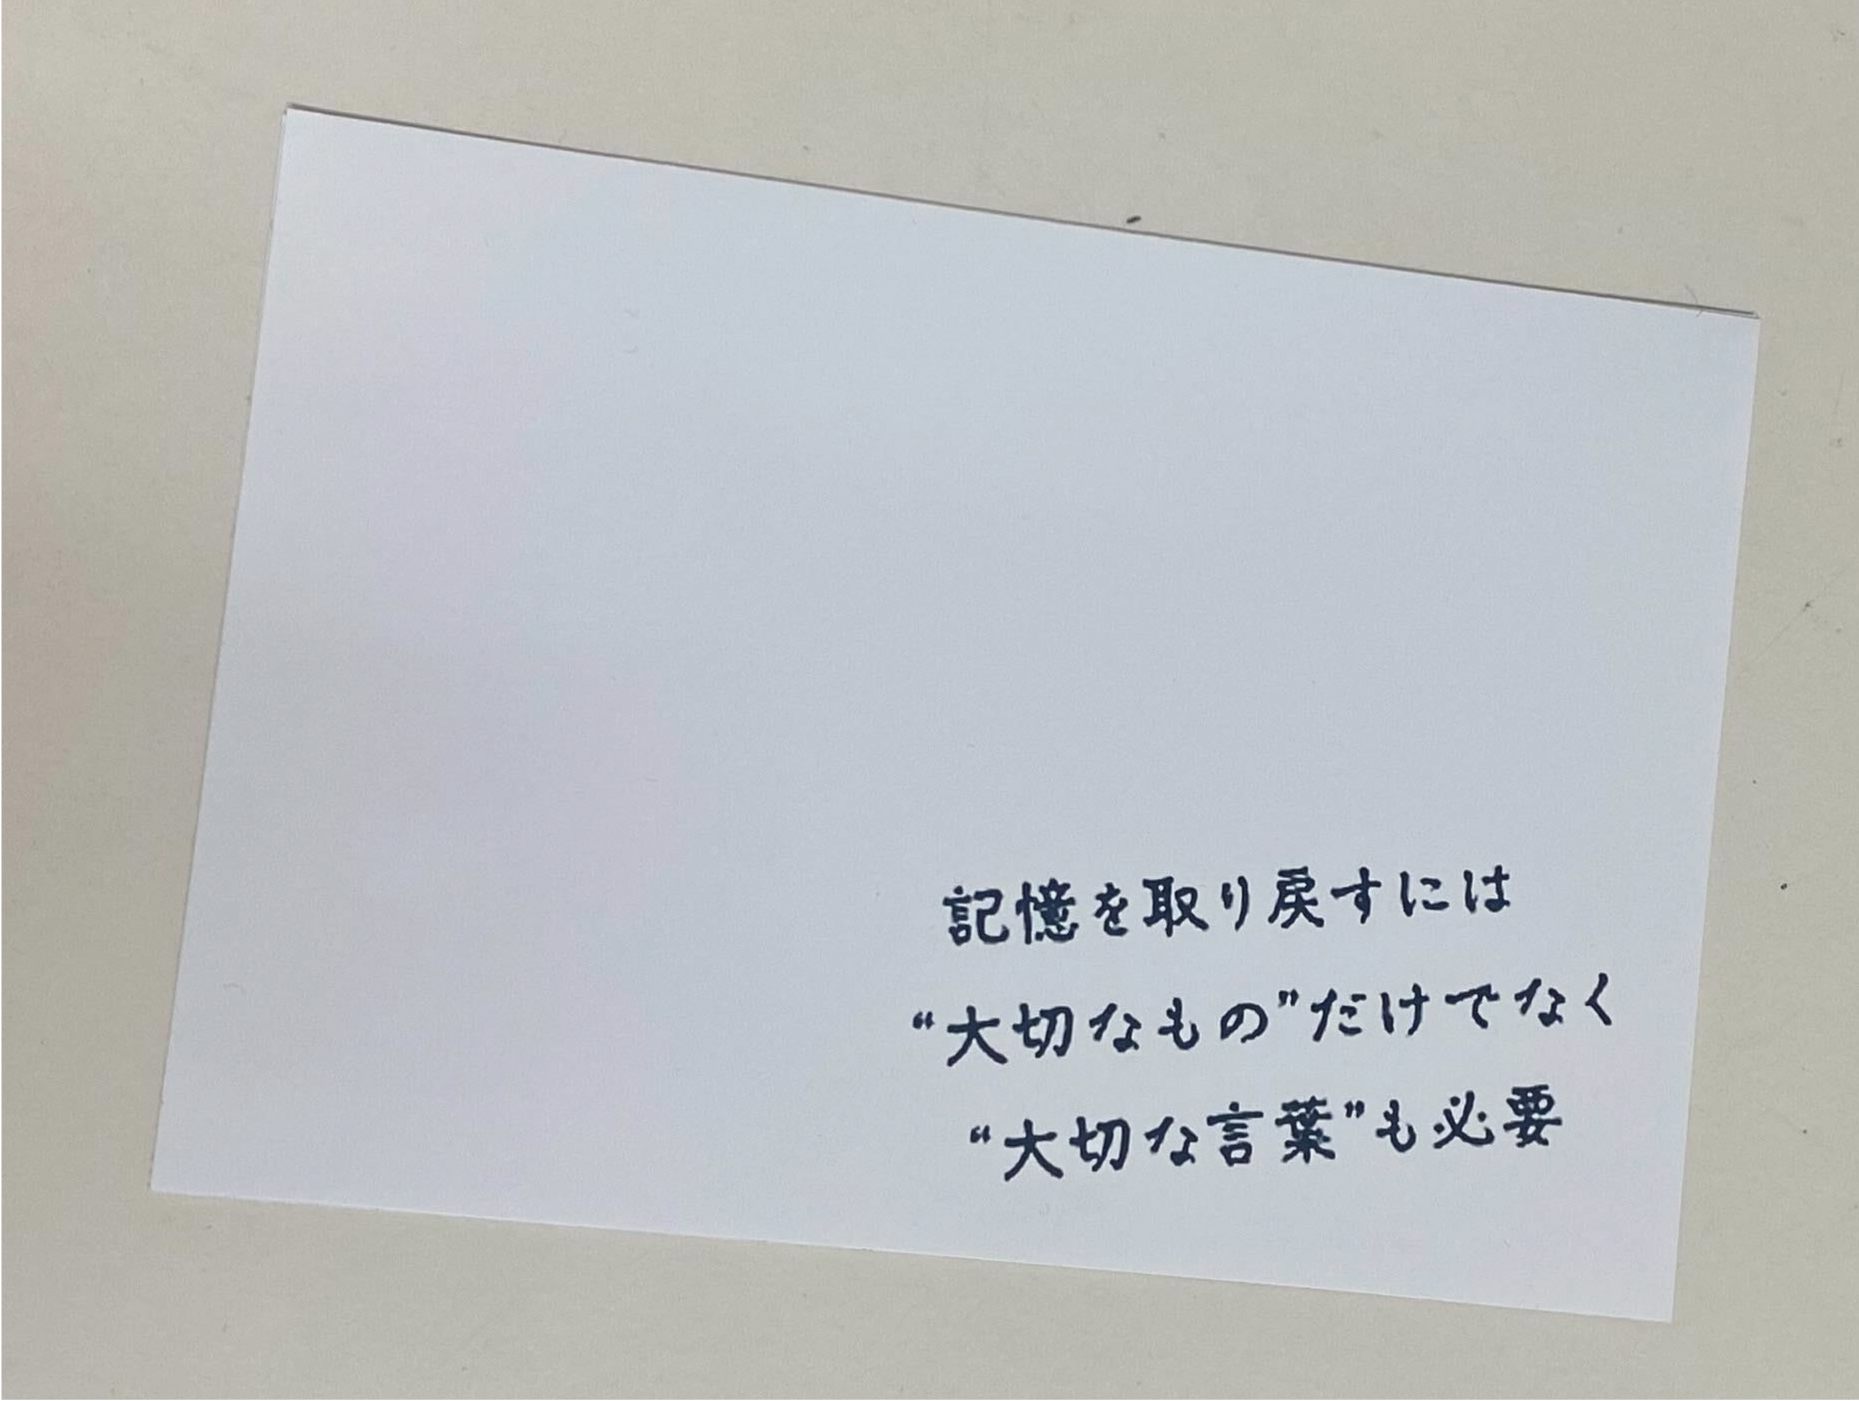 記憶を取り戻すには
“大切なもの”だけでなく
“大切な言葉”も必要